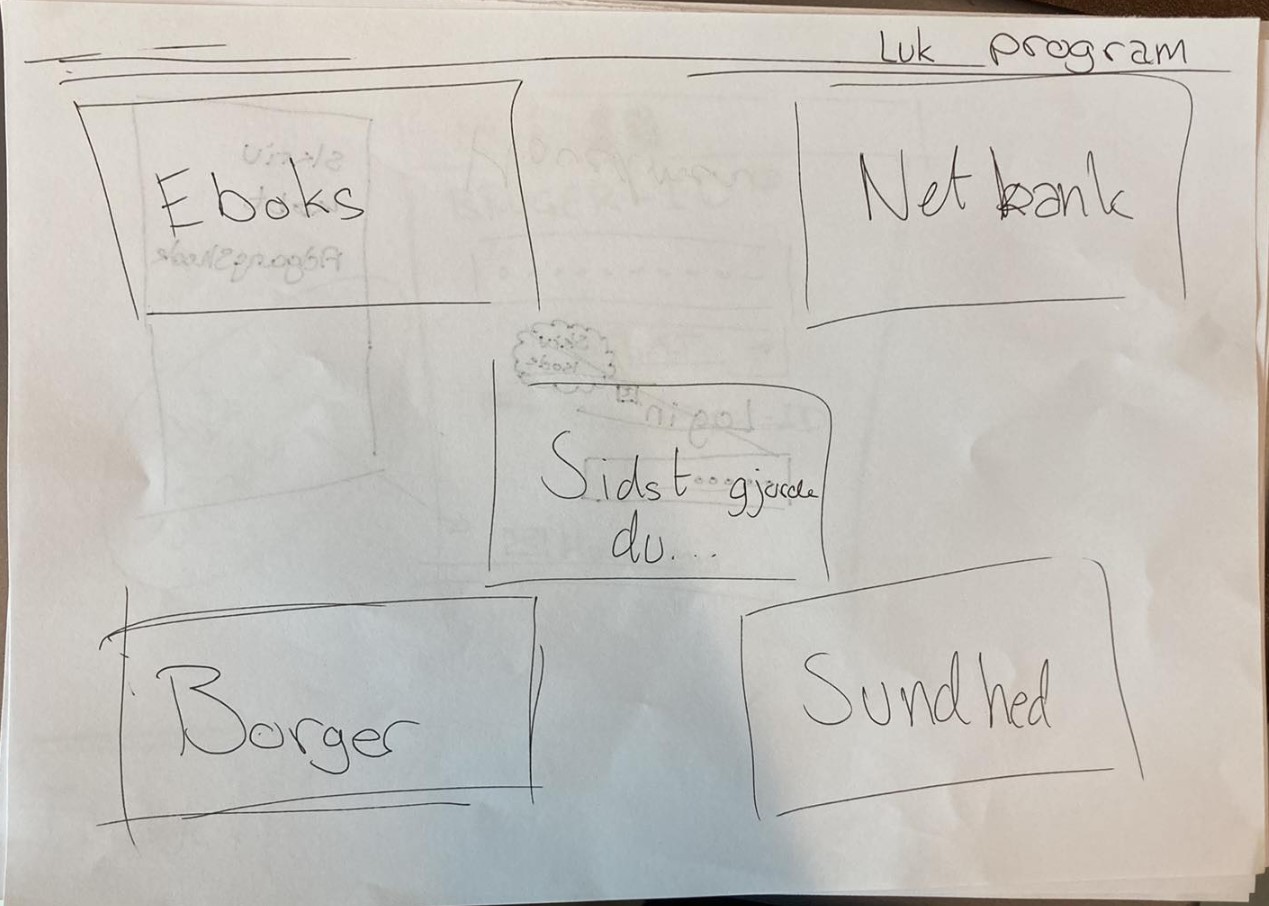 Luk program
Eboks
Net bank
Sidst gjorde
du...
Borger
Sundhed